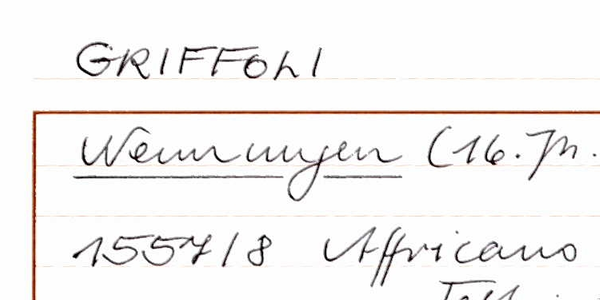 GRIFFOLI
Nennungen (16. Jh.
1557/8 Affricano